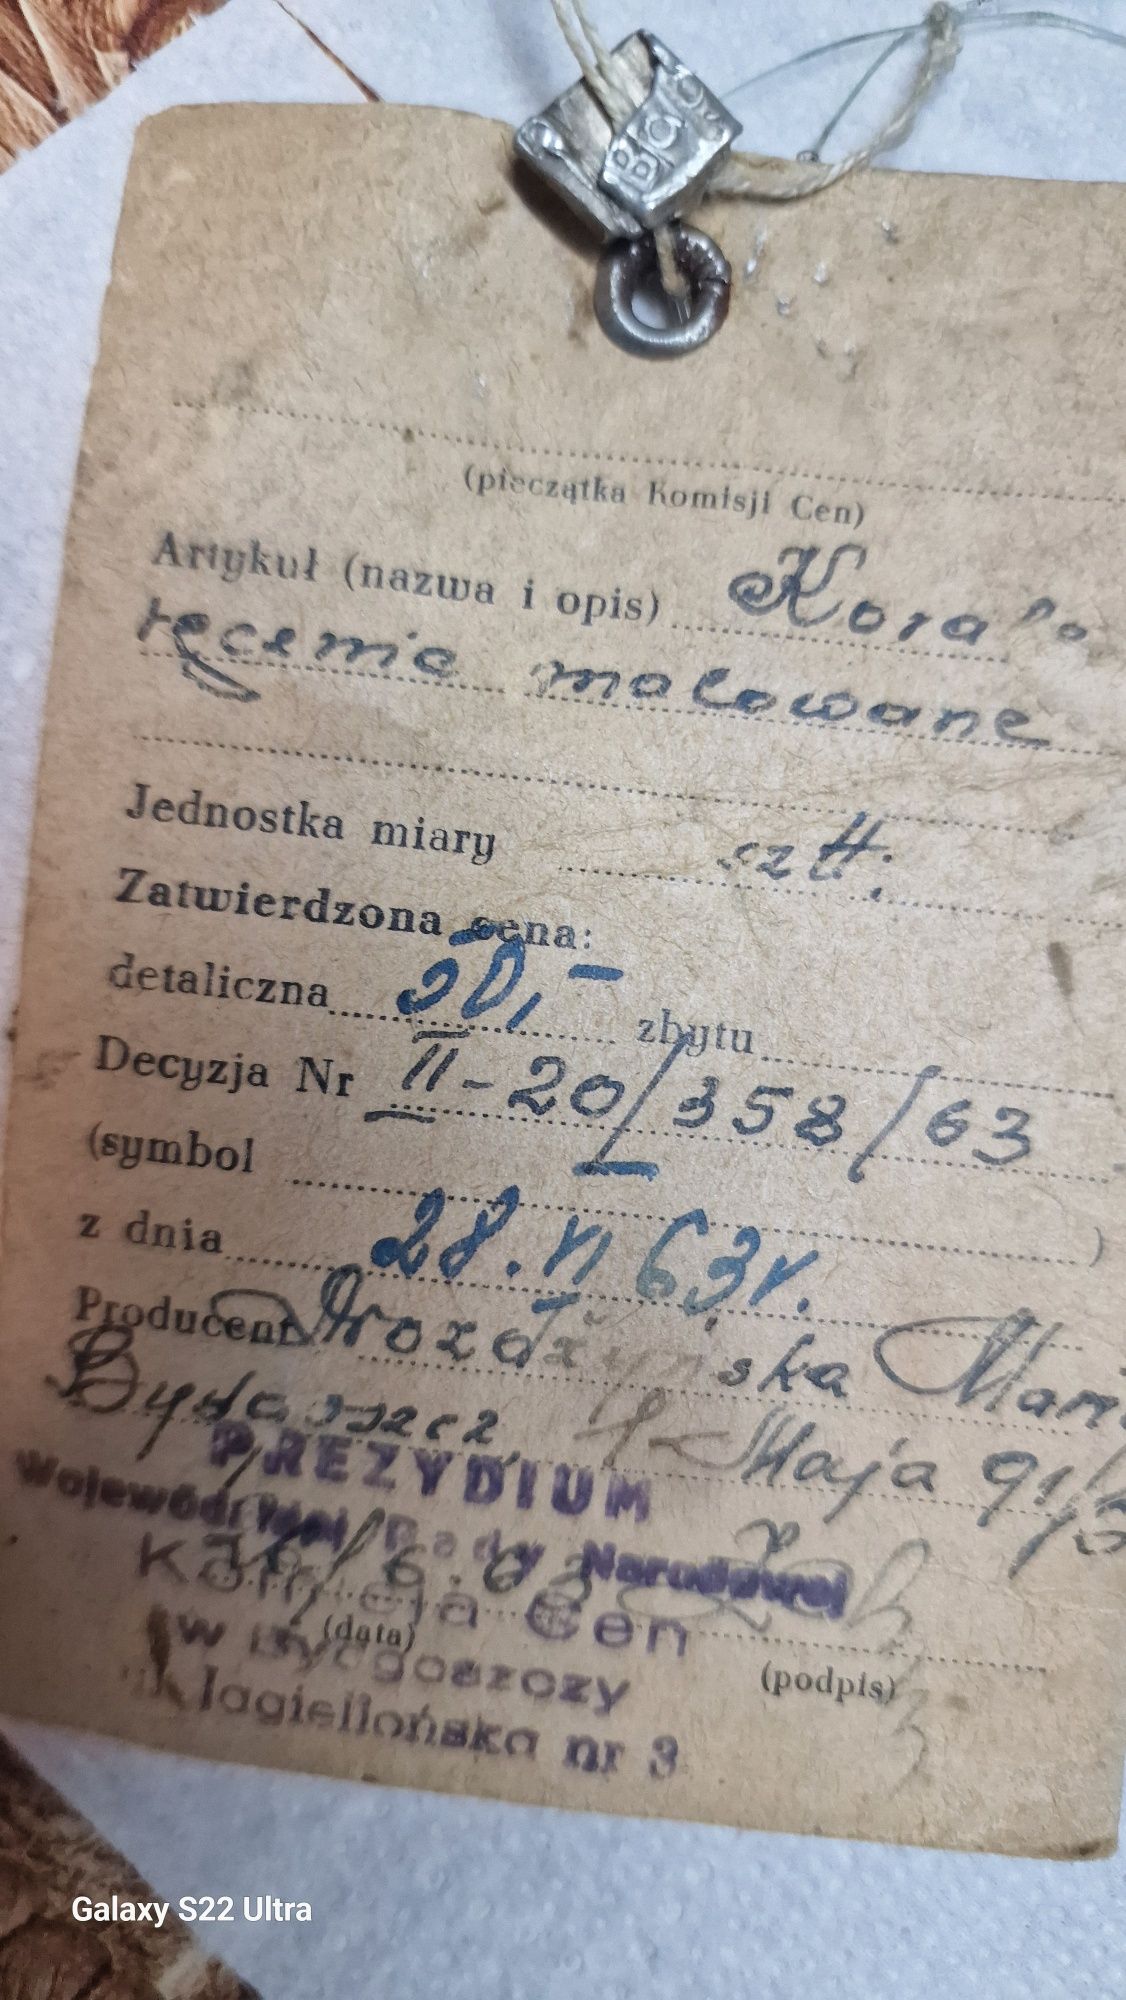 (pieczątka Komisji Cen)
Artykuł (nazwa i opis) Korale
ręcznie malowane
Jednostka miary szt.
Zatwierdzona cena:
detaliczna zbytu
Decyzja Nr II-20/358/63
(symbol )
z dnia 28.VI 63r.
Producent Drozdżyńska
Bydgoszcz, 1 Maja 91/
PREZYDIUM
Wojewódzkiej Rady Narodowej
Komisja Cen
(data)
w Bydgoszczy
(podpis)
Jagiellońska nr 3
Galaxy S22 Ultra